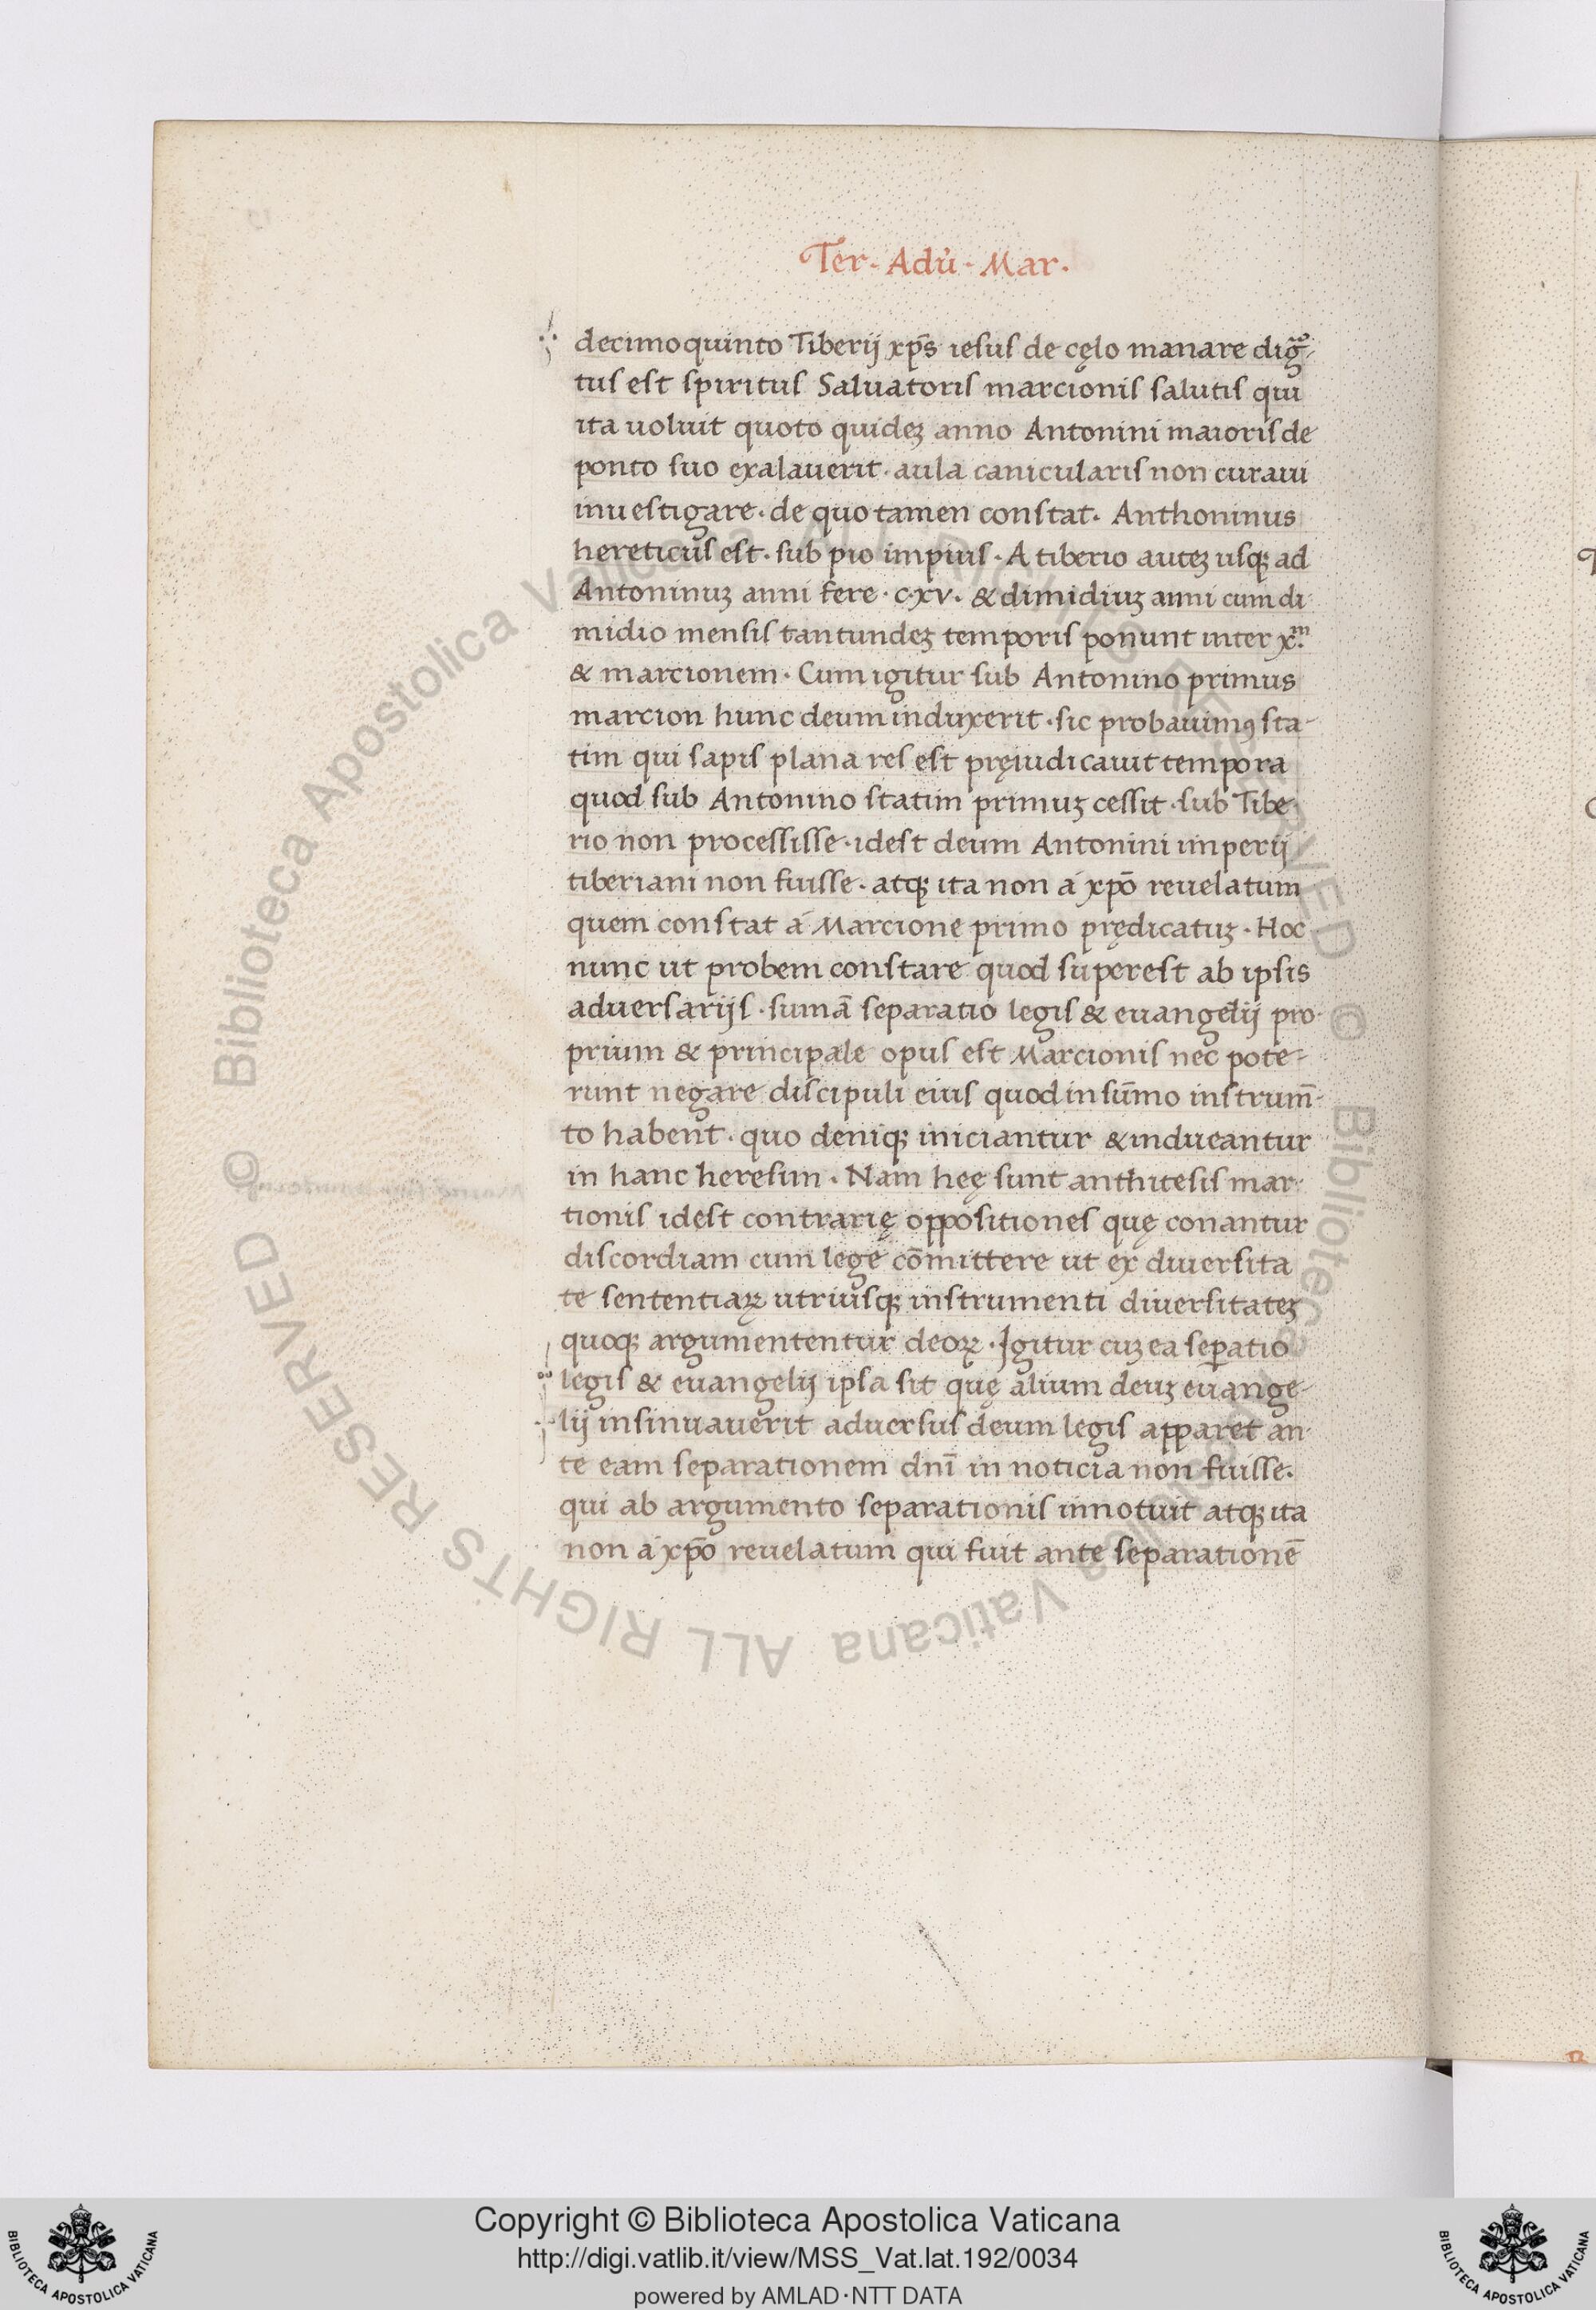 Ter · Adù · Mar ·
decimoquinto Tiberij xp̄s iesus de cęlo manare dig̃-
tus est spiritus Saluatoris marcionis salutis qui
ita uoluit quoto quideꝫ anno Antonini maioris de
ponto suo exalauerit · aula canicularis non curaui
inuestigare · de quo tamen constat · Anthoninus
hereticus est · sub pio impius · A tiberio auteꝫ usqꝫ ad
Antoninuꝫ anni fere · c·xv · & dimidiuꝫ anni cum di
midio mensis tantundeꝫ temporis ponunt inter x.ᵐ
& marcionem · Cum igitur sub Antonino primus
marcion hunc deum induxerit · sic probauimꝰ sta-
tim qui sapis plana res est pręiudicauit tempora
quod sub Antonino statim primuꝫ cessit · sub Tibe
rio non processisse · idest deum Antonini imperij
tiberiani non fuisse · atqꝫ ita non á xpō reuelatum
quem constat á Marcione primo prędicatuꝫ · Hoc
nunc ut probem constare quod superest ab ipsis
aduersarijs · sumā separatio legis & euangelij pro-
prium & principale opus est Marcionis nec pote-
runt negare discipuli eius quod in sūmo instrum̄-
to habent · quo deniqꝫ iniciantur & indueantur
in hanc heresim · Nam heę sunt anthitesis mar-
tionis idest contrarię oppositiones quę conantur
discordiam cum lege cōmittere ut ex diuersita
te sententiaꝝ utriusqꝫ instrumenti diuersitateꝫ
quoqꝫ argumententur deoꝝ · Igitur cuꝫ ea sepatio
legis & euangelij ipsa sit quę alium deuꝫ euange-
lij insinuauerit aduersus deum legis apparet an-
te eam separationem dnī in noticia non fuisse ·
qui ab argumento separationis innotuit atqꝫ ita
non á xpō reuelatum qui fuit ante separationē
Copyright © Biblioteca Apostolica Vaticana
http://digi.vatlib.it/view/MSS_Vat.lat.192/0034
powered by AMLAD·NTT DATA
BIBLIOTECA APOSTOLICA VATICANA
BIBLIOTECA APOSTOLICA VATICANA
© Biblioteca Apostolica Vaticana ALL RIGHTS RESERVED
© Biblioteca Apostolica Vaticana ALL RIGHTS RESERVED